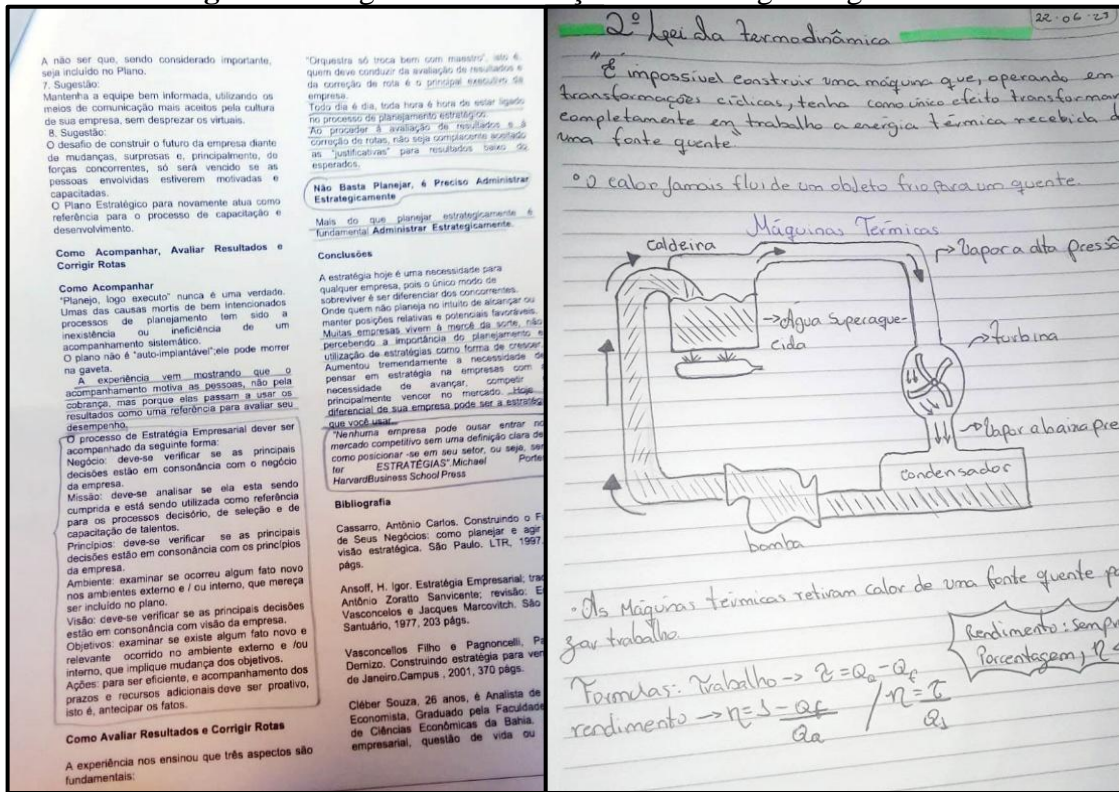 A não ser que, sendo considerado importante,
seja incluído no Plano.
7. Sugestão:
Mantenha a equipe bem informada, utilizando os
meios de comunicação mais aceitos pela cultura
de sua empresa, sem desprezar os virtuais.
8. Sugestão:
O desafio de construir o futuro da empresa diante
de mudanças, surpresas e, principalmente, de
forças concorrentes, só será vencido se as
pessoas envolvidas estiverem motivadas e
capacitadas.
O Plano Estratégico para novamente atua como
referência para o processo de capacitação e
desenvolvimento.
Como Acompanhar, Avaliar Resultados e
Corrigir Rotas
Como Acompanhar
"Planejo, logo executo" nunca é uma verdade.
Umas das causas mortis de bem intencionados
processos de planejamento tem sido a
inexistência ou ineficiência de um
acompanhamento sistemático.
O plano não é "auto-implantável";ele pode morrer
na gaveta.
A experiência vem mostrando que o
acompanhamento motiva as pessoas, não pela
cobrança, mas porque elas passam a usar os
resultados como uma referência para avaliar seu
desempenho.
O processo de Estratégia Empresarial dever ser
acompanhado da seguinte forma:
Negócio: deve-se verificar se as principais
decisões estão em consonância com o negócio
da empresa.
Missão: deve-se analisar se ela esta sendo
cumprida e está sendo utilizada como referência
para os processos decisório, de seleção e de
capacitação de talentos.
Princípios: deve-se verificar se as principais
decisões estão em consonância com os princípios
da empresa.
Ambiente: examinar se ocorreu algum fato novo
nos ambientes externo e / ou interno, que mereça
ser incluído no plano.
Visão: deve-se verificar se as principais decisões
estão em consonância com visão da empresa.
Objetivos: examinar se existe algum fato novo e
relevante ocorrido no ambiente externo e /ou
interno, que implique mudança dos objetivos.
Ações: para ser eficiente, e acompanhamento dos
prazos e recursos adicionais deve ser proativo,
isto é, antecipar os fatos.
Como Avaliar Resultados e Corrigir Rotas
A experiência nos ensinou que três aspectos são
fundamentais:
"Orquestra só troca bem com maestro", isto é,
quem deve conduzir da avaliação de resultados e
da correção de rota é o principal executivo da
empresa.
Todo dia é dia, toda hora é hora de estar ligado
no processo de planejamento estratégico.
Ao proceder à avaliação de resultados e à
correção de rotas, não seja complacente aceitado
as "justificativas" para resultados baixo do
esperados.
Não Basta Planejar, é Preciso Administrar
Estrategicamente
Mais do que planejar estrategicamente é
fundamental Administrar Estrategicamente.
Conclusões
A estratégia hoje é uma necessidade para
qualquer empresa, pois o único modo de
sobreviver é ser diferenciar dos concorrentes.
Onde quem não planeja no intuito de alcançar ou
manter posições relativas e potenciais favoráveis.
Muitas empresas vivem à mercê da sorte, não
percebendo a importância do planejamento e
utilização de estratégias como forma de crescer.
Aumentou tremendamente a necessidade de
pensar em estratégia na empresas com a
necessidade de avançar, competir
principalmente vencer no mercado. Hoje
diferencial de sua empresa pode ser a
que você usar.
"Nenhuma empresa pode ousar entrar no
mercado competitivo sem uma definição clara de
como posicionar -se em seu setor, ou seja, sem
ter ESTRATÉGIAS".Michael Porter
HarvardBusiness School Press
Bibliografia
Cassarro, Antônio Carlos. Construindo o
de Seus Negócios: como planejar e agir
visão estratégica. São Paulo. LTR, 1997.
págs.
Ansoff, H. Igor. Estratégia Empresarial;
Antônio Zoratto Sanvicente; revisão:
Vasconcelos e Jacques Marcovitch. São
Santuário, 1977, 203 págs.
Vasconcellos Filho e Pagnoncelli,
Demizo. Construindo estratégia para
de Janeiro.Campus , 2001, 370 págs.
Cléber Souza, 26 anos, é Analista de
Economista, Graduado pela Faculdade
de Ciências Econômicas da Bahia.
empresarial, questão de vida ou
22.06.23
2º Lei da termodinâmica
"É impossível construir uma máquina que, operando em
transformações cíclicas, tenha como único efeito transformar
completamente em trabalho a energia térmica recebida
uma fonte quente.
° O calor jamais flui de um objeto frio para um quente
Máquinas Térmicas
caldeira
→ Vapor a alta
→ Água superaque-
cida
→ turbina
→ Vapor a baixa
condensador
bomba
• As Máquinas térmicas retiram calor de uma fonte quente
zar trabalho.
Rendimento: sempre
Porcentagem; η <
Formulas: Trabalho → τ = Qq - Qf
rendimento → η = 1 - Qf/Qq / η = τ/Qq